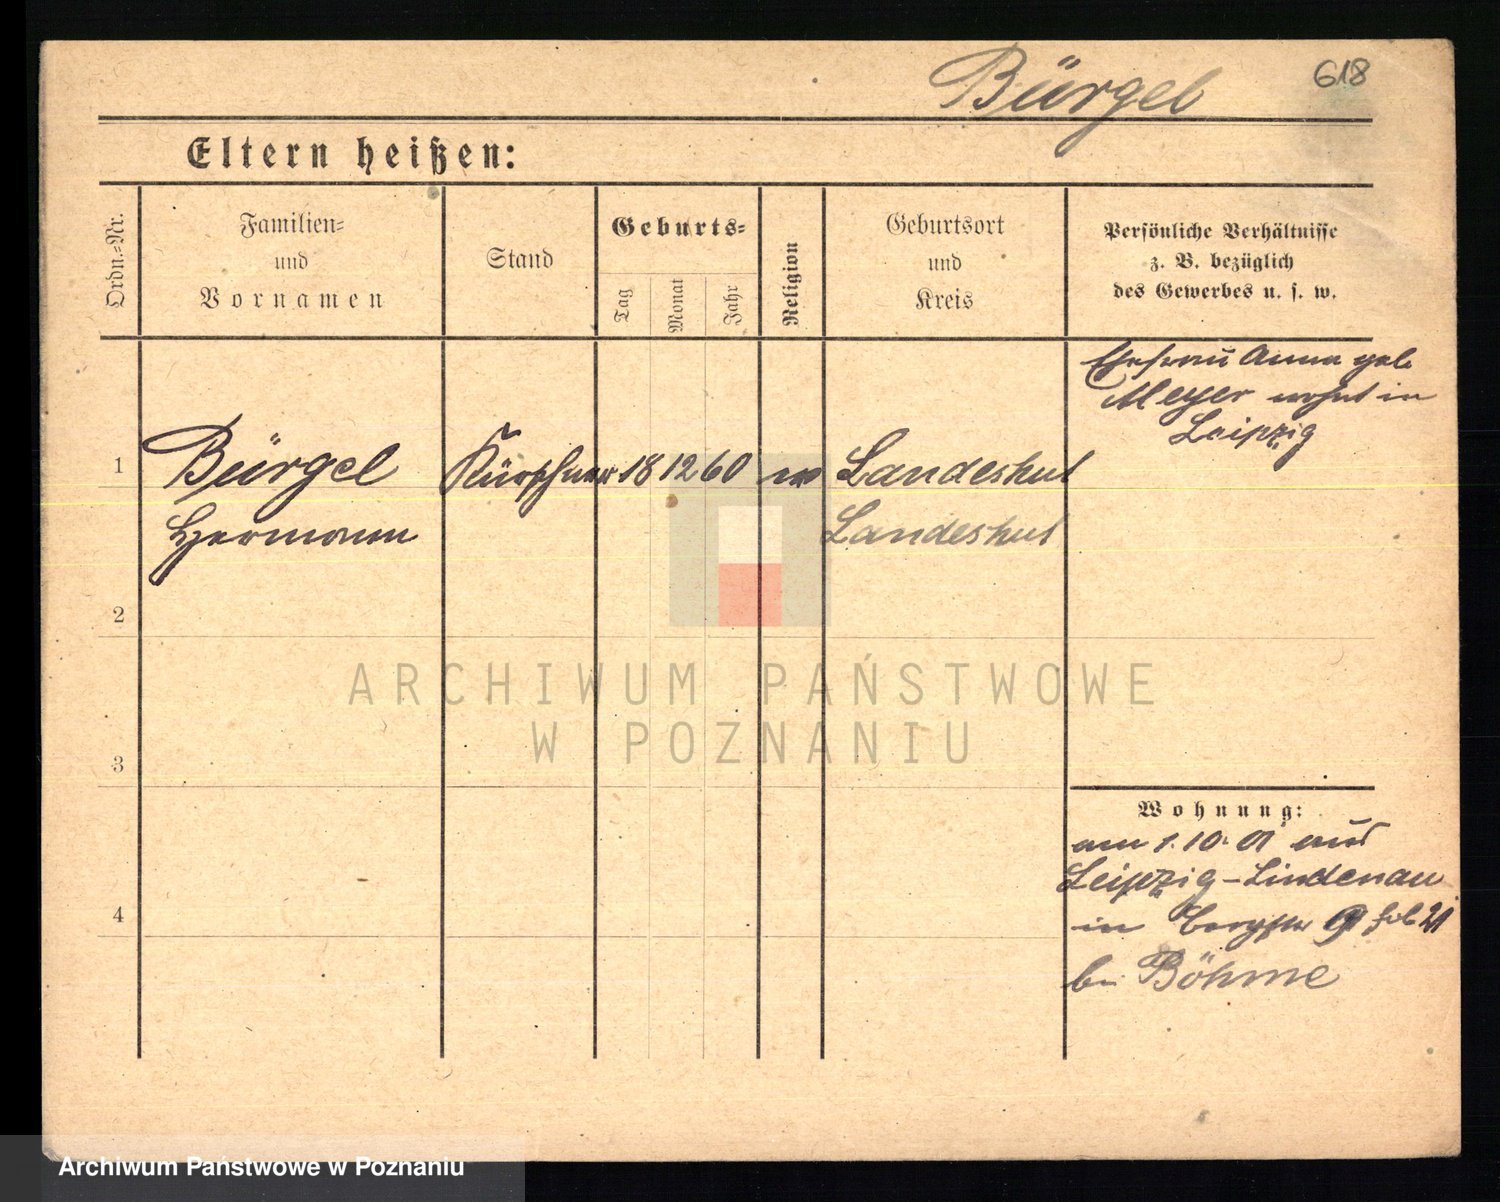 Bürgel
618
Eltern heißen:
Ordn.=Nr.
Familien=
und
Vornamen
Stand
Geburts=
Tag
Monat
Jahr
Religion
Geburtsort
und
Kreis
Persönliche Verhältnisse
z. B. bezüglich
des Gewerbes u. s. w.
Ehefrau Anna geb.
Meyer wohnt in
Leipzig
1
Bürgel
Hermann
Kürschner
18
12
60
ev
Landeshut
Landeshut
2
3
4
Wohnung:
am 1.10.01 aus
Leipzig-Lindenau
in Bergstr 9
bei Böhme
ARCHIWUM PAŃSTWOWE
W POZNANIU
Archiwum Państwowe w Poznaniu